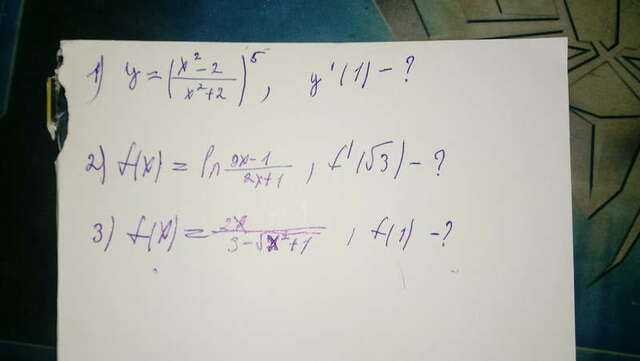 1) y = (x² - 2 / x² + 2)⁵, y'(1) - ?
2) f(x) = ln 2x - 1 / 2x + 1, f'(√3) - ?
3) f(x) = 2x / 3 - √x² + 1, f(1) - ?